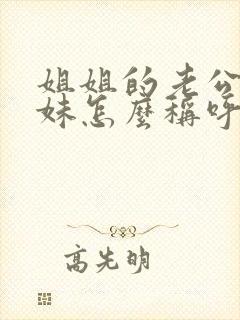 姐姐的老公
妹怎麼稱呼
高先明